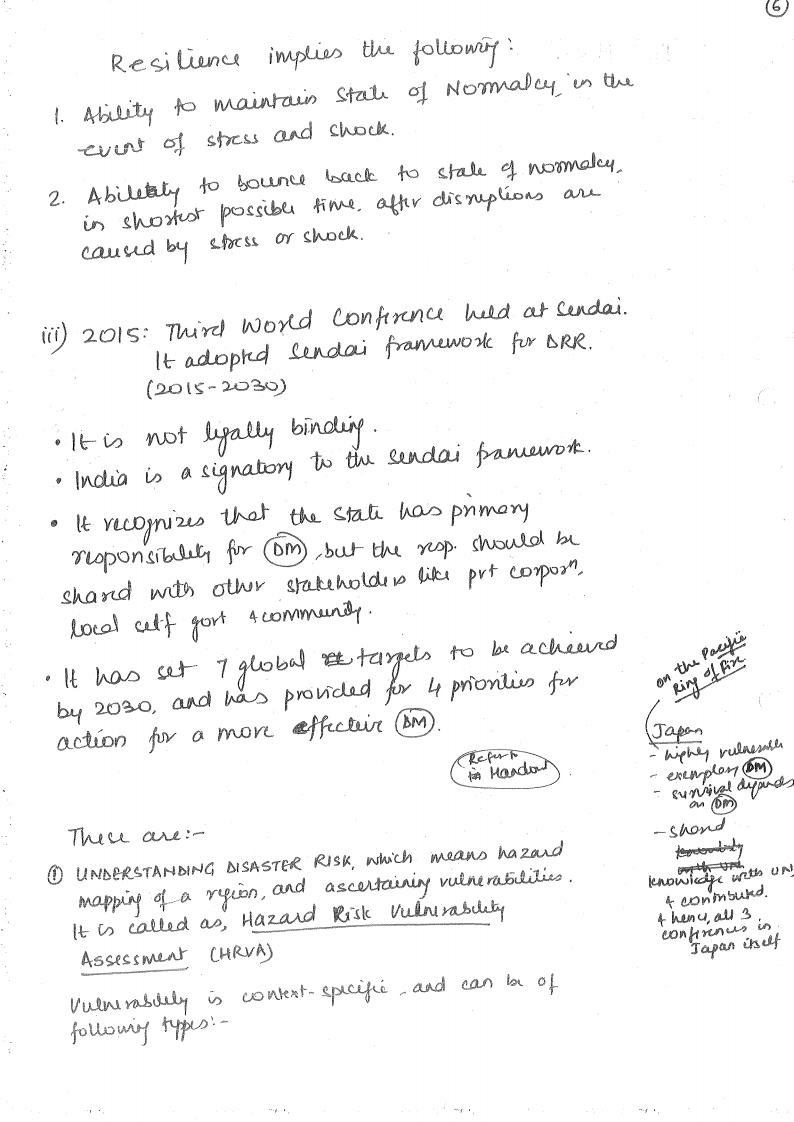 6
Resilience implies the following:
1. Ability to maintain state of Normalcy, in the
event of stress and shock.
2. Ability to bounce back to state of normalcy,
in shortest possible time, after disruptions are
caused by stress or shock.
iii) 2015: Third World Conference held at Sendai.
It adopted Sendai framework for DRR.
(2015-2030)
• It is not legally binding.
• India is a signatory to the Sendai framework.
• It recognizes that the State has primary
responsibility for DM, but the resp. should be
shared with other stakeholders like pvt corporn,
local self govt & community.
• It has set 7 global targets to be achieved
by 2030, and has provided for 4 priorities for
action for a more effective DM.
Refer to
Handout
on the Pacific
Ring of Fire
Japan
- highly vulnerable
- exemplary DM
- survival depends
on DM
- shared
knowledge with UN
& contributed.
& hence, all 3
conferences in
Japan itself
These are:-
① UNDERSTANDING DISASTER RISK, which means hazard
mapping of a region, and ascertaining vulnerabilities.
It is called as, Hazard Risk Vulnerability
Assessment (HRVA)
Vulnerability is context-specific, and can be of
following types:-